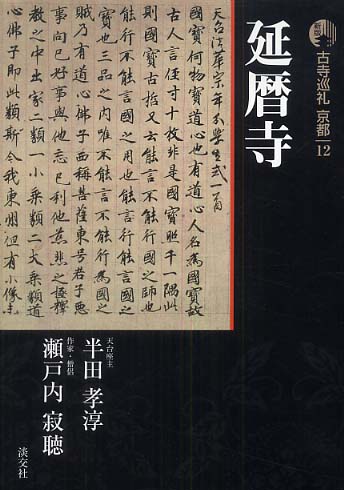 新版
古寺巡礼 京都 12
延暦寺
天台法華宗年分學生式一首
國寶何物寶道心也有道心人名為國寶故
古人言径寸十枚非是國寶照千一隅此
則國寶古哲又云能言不能行國之師也
能行不能言國之用也能行能言國之
寶也三品之内唯不能言不能行為國之
賊乃有道心佛子西稱菩薩東号君子悪
事向己好事與他忘己利他慈悲之極釋
教之中出家二類一小乘類二大乘類道
心佛子即此類斯今我東州但有小像未
天台座主
半田 孝淳
作家・僧侶
瀬戸内 寂聴
淡交社